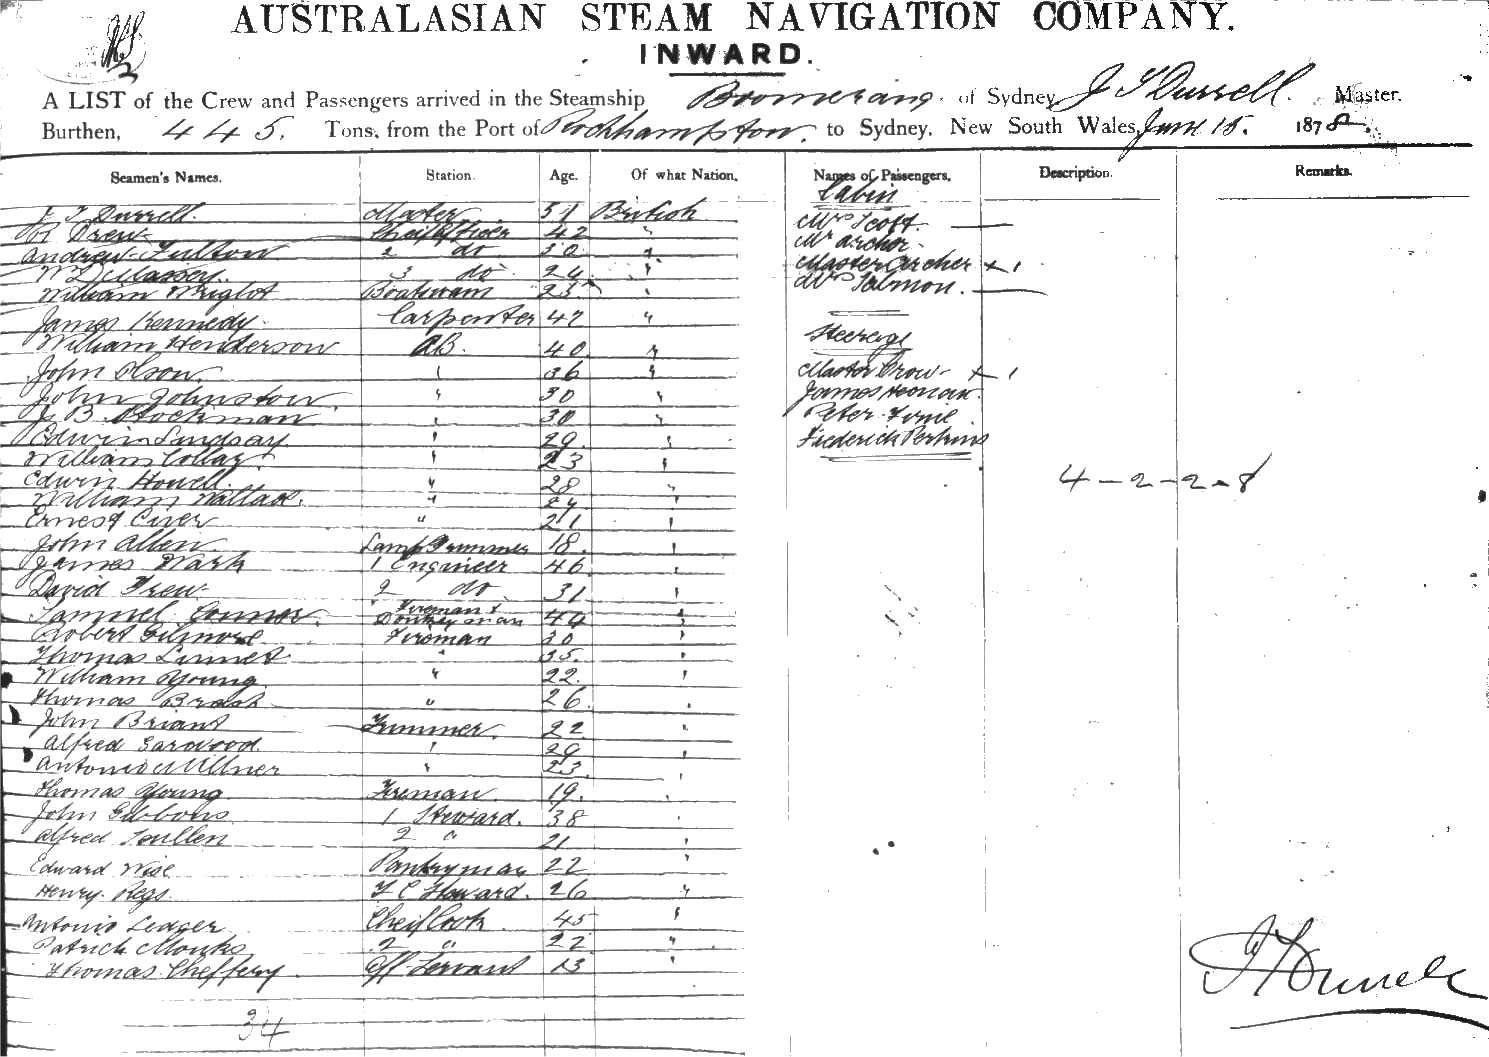 AUSTRALASIAN STEAM NAVIGATION COMPANY.
INWARD.
A LIST of the Crew and Passengers arrived in the Steamship Boomerang. of Sydney J T Durrell. Master.
Burthen, 445. Tons, from the Port of Rockhampton. to Sydney, New South Wales, June 15. 1878.
Seamen's Names. Station. Age. Of what Nation. Names of Passengers. Description. Remarks.
Cabin
J T Durrell. Master. 51 British Mrs Scott.
Drew Cheif Officer 42 " Mr Archer.
Andrew Fulton 2 do 30 " Master Archer x 1
W Massey. 3 do 24 "
William Wright Boatswain 23 "
James Kennedy. Carpenter 42 "
Steerage
William Henderson AB. 40 "
John Olson. " 36 " Master Crow - x 1
John Johnston " 30 " James
J B Stockman " 30 " Peter
Edwin Lindsay " 29 " Frederick Perkins
William " 23 "
Edwin Howell. " 28 " 4-2-2-8
William Wallace. " 24 "
Ernest " 21 "
John Allen. Lamp Trimmer 18. "
James Wark 1 Engineer 46 "
David Frew. 2 do 31 "
Samuel Connor. Fireman & Donkeyman 44 "
Robert Gilmore Fireman 30 "
Thomas Linnet " 35. "
William Young " 22. "
Thomas Brash " 26. "
John Briant Trimmer. 22 "
Alfred Garwood " 29 "
Antonio Millner " 23 "
Thomas Young Fireman 19. "
John Gibbons 1 Steward. 38 "
Alfred 2 " 21 "
Edward Wise Pantryman 22 "
Henry. F C Steward. 26 "
Antonio Ledger Cheif Cook 45 "
Patrick Monks 2 " 22 "
Thomas Cheffery Off Servant 13 "
J T Durrell
34